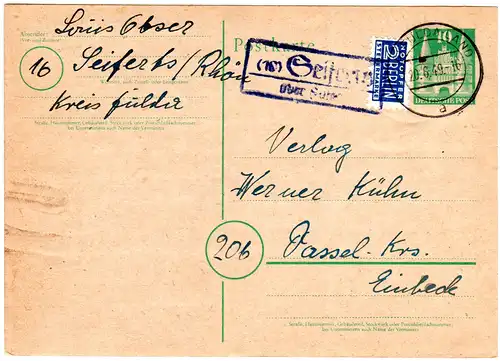 Absender:
Louis Obser
16
Seiferts/Rhön
Kreis Fulda
Straße, Hausnummer, Gebäudeteil, Stockwerk oder Postschließfachnummer;
bei Untermietern auch Name des Vermieters
Postkarte
(16) Seiferts
über
NOTOPFER
2 BERLIN
STEUERMARKE
10
DEUTSCHE POST
Verlag
Werner Kühn
20b
Dassel-Krs.
Einbeck
Straße, Hausnummer, Gebäudeteil, Stockwerk oder Postschließfachnummer;
bei Untermietern auch Name des Vermieters